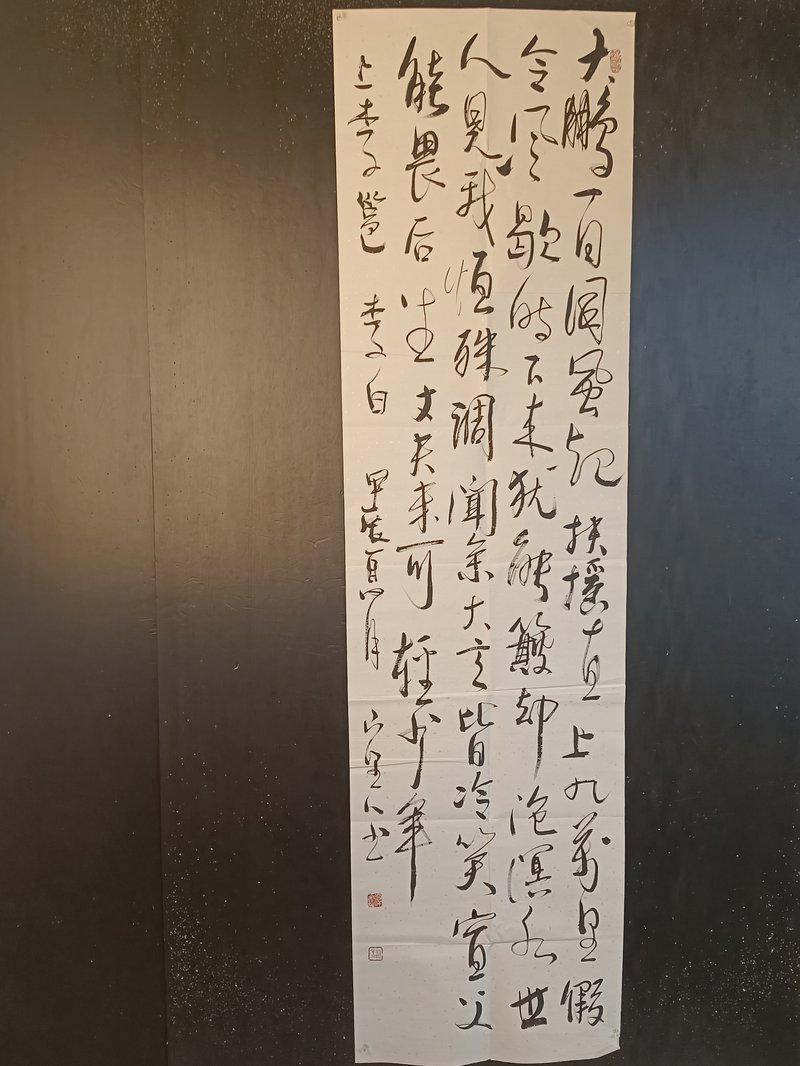 大鵬一日同風起扶搖直上九萬里假
令風歇时下来犹能簸却沧溟水世
人見我恒殊調聞余大言皆冷笑宣父
能畏后生丈夫未可輕少年
上李邕 李白 甲辰 月 山里人书